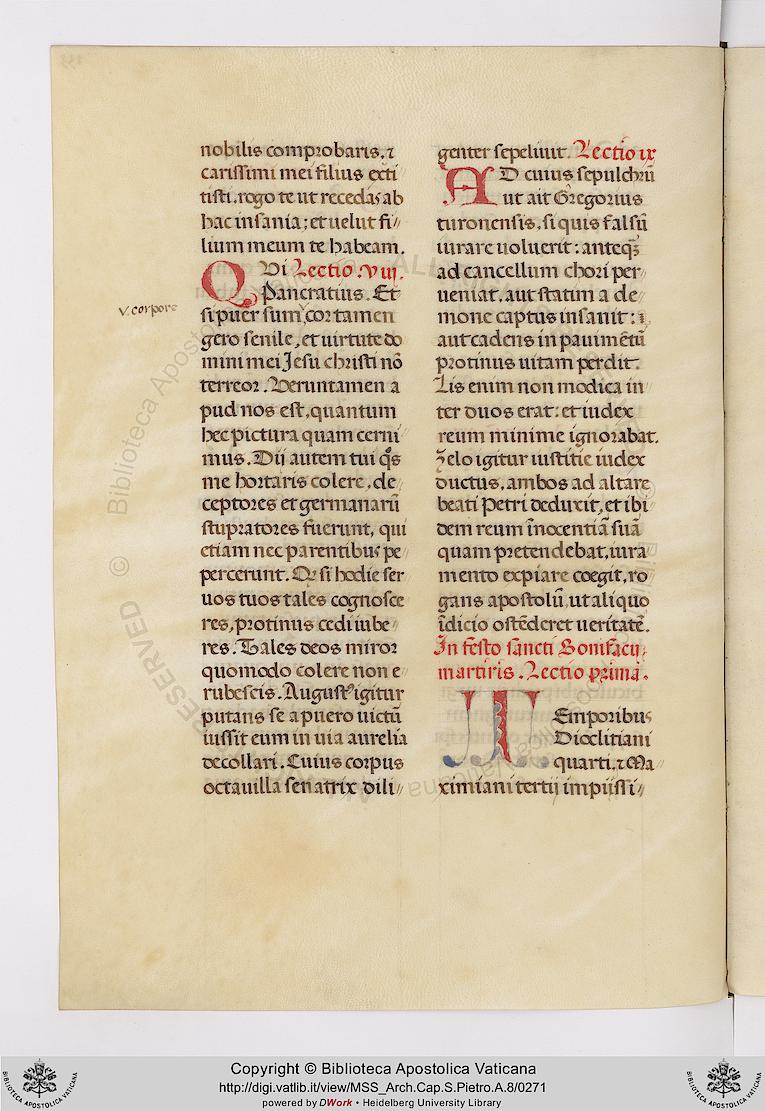 nobilis comprobaris. ⁊
carissimi mei filius exti
tisti. rogo te ut recedas ab
hac insania; et uelut fi
lium meum te habeam.
QVi Lectio .viij.
Pancratius. Et
si puer sum, cor tamen
v. corpore
gero senile, et uirtute do
mini mei Jesu christi nō
terreor. Veruntamen a
pud nos est, quantum
hec pictura quam cerni
mus. Dij autem tui qs
me hortaris colere, de
ceptores et germanarū
stupratores fuerunt, qui
etiam nec parentibus pe
percerunt. Q si hodie ser
uos tuos tales cognosce
res, protinus cedi iube
res. Tales deos miror
quomodo colere non e
rubescis. August igitur
putans se a puero uictū
iussit eum in uia aurelia
decollari. Cuius corpus
octauilla senatrix dili
genter sepeliuit. Lectio ix
AD cuius sepulchrū
ut ait Gregorius
turonensis. si quis falsū
iurare uoluerit: anteqȝ
ad cancellum chori per
ueniat. aut statim a de
mone captus insanit:
aut cadens in pauimētū
protinus uitam perdit.
Lis enim non modica in
ter duos erat: et iudex
reum minime ignorabat.
Zelo igitur iustitie iudex
ductus, ambos ad altare
beati Petri deduxit, et ibi
dem reum īnocentiā suā
quam pretendebat, iura
mento expiare coegit, ro
gans apostolū, ut aliquo
īdicio ostēderet ueritatē.
In festo sancti Bonifacij
martiris. Lectio prima.
TEmporibus
Dioclitiani
quarti. ⁊ Ma
ximiani tertij impijssi
Copyright © Biblioteca Apostolica Vaticana
http://digi.vatlib.it/view/MSS_Arch.Cap.S.Pietro.A.8/0271
powered by DWork • Heidelberg University Library